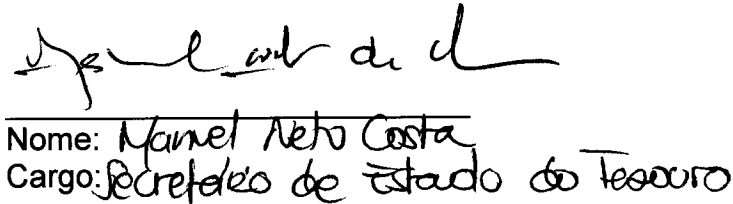 Nome: Manuel Neto Costa
Cargo: Secretário de Estado do Tesouro